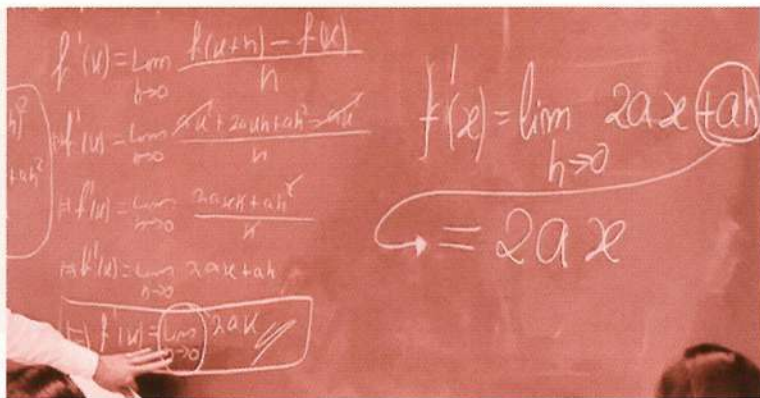 h)²
+ah²
f'(x) = lim h→0 f(x+h) - f(x) / h
f'(x) = lim h→0 ax² + 2axh + ah² - ax² / h
⇒ f'(x) = lim h→0 2axh + ah² / h
⇒ f'(x) = lim h→0 2ax + ah
⇒ f'(x) = lim h→0 2ax
f'(x) = lim h→0 2ax + ah
= 2ax